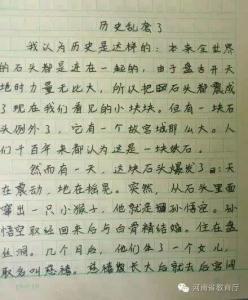 历史乱套了
我认为历史是这样的：本来全世界
的石头都是连在一起的，由于盘古开天
地时力量无比大，所以把石头都震成
了现在我们看见的小块块。但有一块石
头例外了，它有一个故宫城那么大。人
们千百年来都认为这是一块铁石。
然而有一天，这块石头爆发了：天
在震动，地在摇晃。突然，从石头里面
窜出一只小猴子，他就是孙悟空。孙
悟空取经回来后与白骨精结婚。住在盘
丝洞。几个月后，他们生了一个女儿，
取名叫慈禧。慈禧长大后就去后宫闹
河南省教育厅